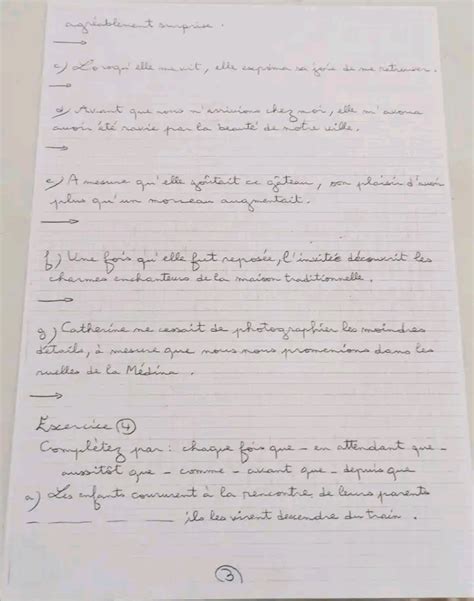 agréablement surprise.
→
c) Lorsqu'elle me vit, elle exprima sa joie de me retrouver.
→
d) Avant que nous n'arrivions chez moi, elle m'avoua
avoir été ravie par la beauté de notre ville.
→
e) A mesure qu'elle goûtait ce gâteau, son plaisir d'avoir
plus qu'un morceau augmentait.
→
f) Une fois qu'elle fut reposée, l'invitée découvrit les
charmes enchanteurs de la maison traditionnelle.
→
g) Catherine ne cessait de photographier les moindres
détails, à mesure que nous nous promenions dans les
ruelles de la Médina.
→
Exercice 4
Complétez par : chaque fois que - en attendant que -
aussitôt que - comme - avant que - depuis que
a) Les enfants coururent à la rencontre de leurs parents
__ __________ ils les virent descendre du train.
3